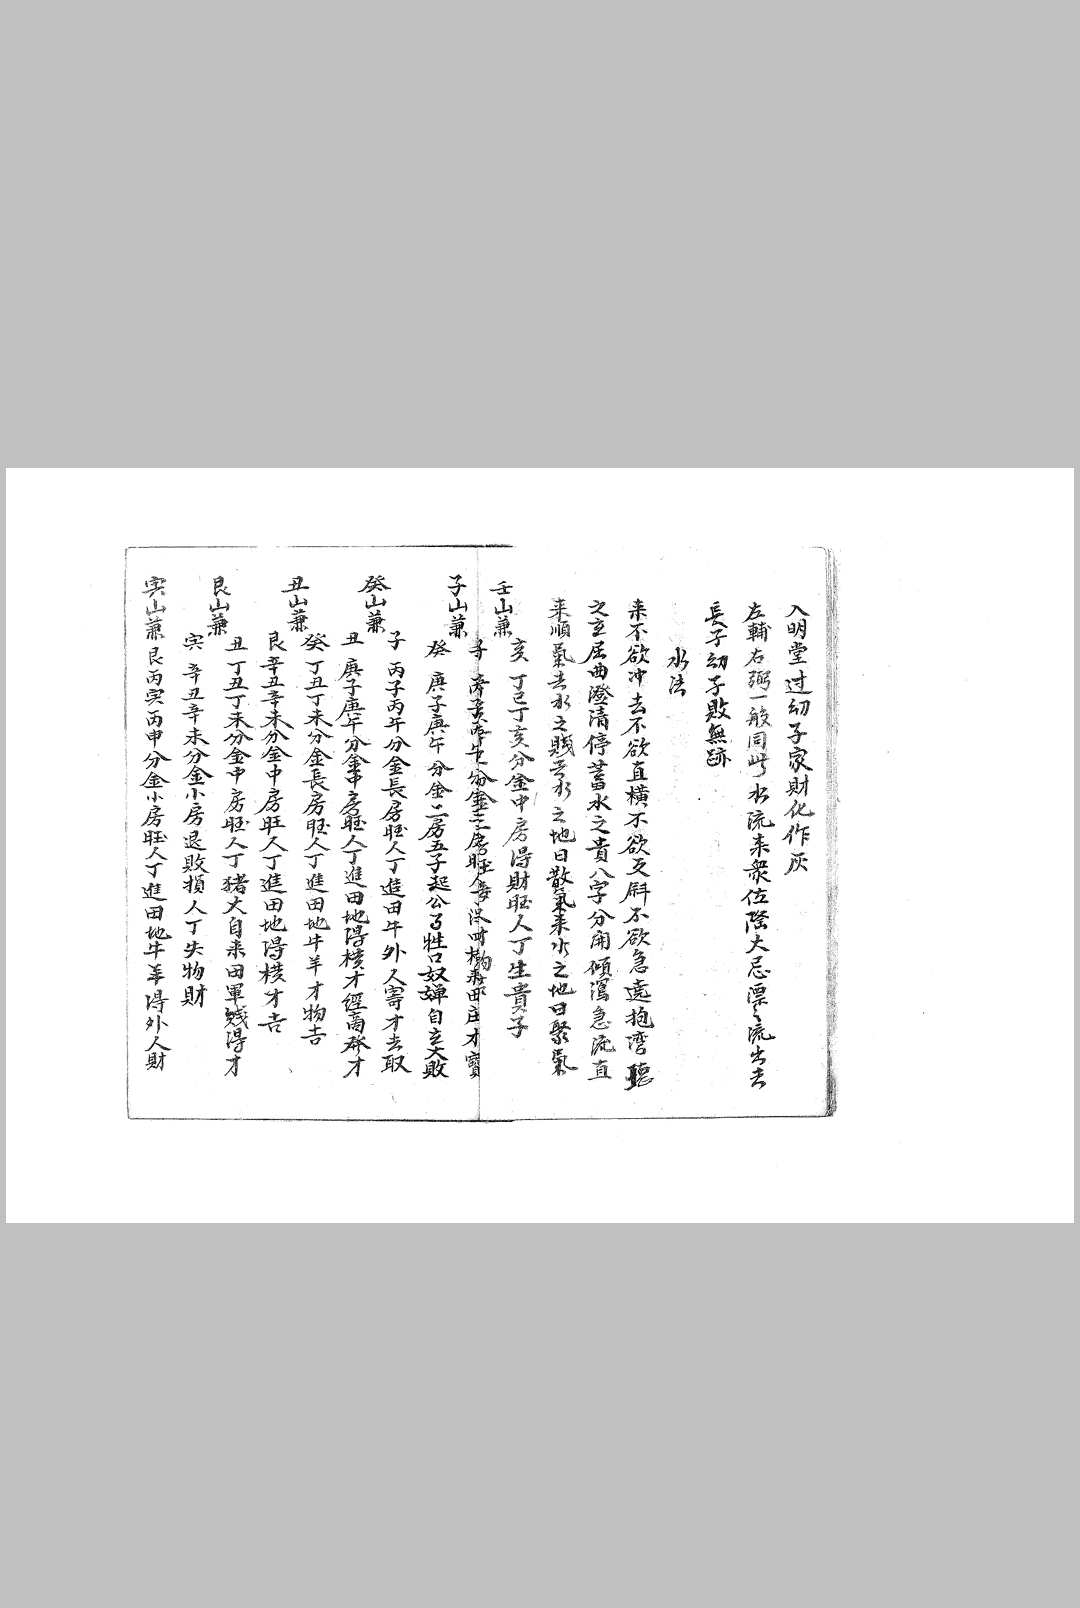 入明堂过幼子家財化作灰
左輔右弼一般同此水流来衆位際大忌漂々流出去
長子幼子敗無跡
水法
来不欲冲去不欲直横不欲反斜不欲急遠抱湾聽
之玄屈曲澄清停蓄水之貴八字分開傾瀉急流直
来順氣去水之賤去水之地曰散氣来水之地曰聚氣
壬山兼
亥丁巳丁亥分金中房得財旺人丁生貴子
子山兼
癸庚子庚午分金二房五子起公司牲口奴婢自立大敗
癸山兼
子丙子丙午分金長房旺人丁進田牛外人寄才去取
丑庚子庚午分金中房旺人丁進田地得横才經商發才
丑山兼
癸丁丑丁未分金長房旺人丁進田地牛羊才物吉
艮辛丑辛未分金中房旺人丁進田地得横才吉
艮山兼
丑丁丑丁未分金中房旺人丁猪犬自来田軍賤得才
寅辛丑辛未分金小房退敗損人丁失物財
寅山兼
艮丙寅丙申分金小房旺人丁進田地牛羊得外人財